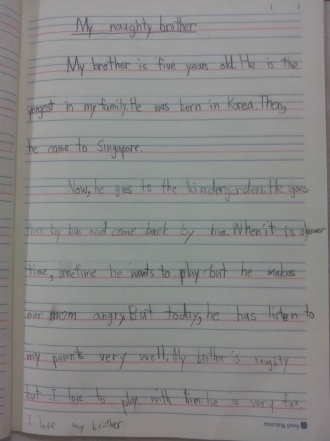 ( )
My naughty brother
My brother is five years old. He is the
yongest in my family. He was born in Korea. Then,
he came to Singapore.
Now, he goes to the kindergarden. He goes
there by bus and come back by him. When it is shower
time, sometime he wants to play but he makes
our mom angry. But today, he has listen to
my parents very well. My brother is naughty
but I love to play with him. he is very fun.
I love my brother
morning glory